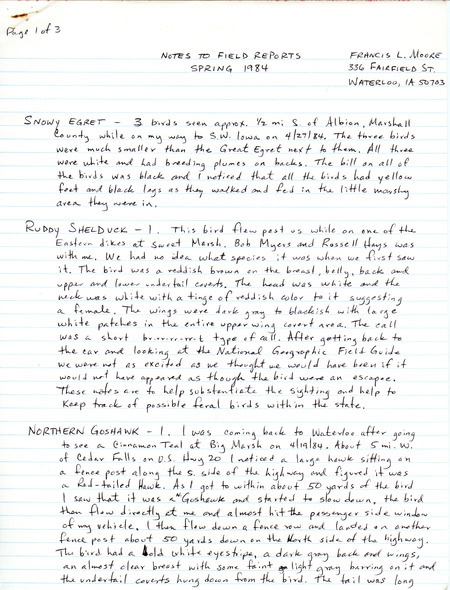 Page 1 of 3
NOTES TO FIELD REPORTS
SPRING 1984
FRANCIS L. MOORE
336 FAIRFIELD ST.
WATERLOO, IA 50703
SNOWY EGRET - 3 birds seen approx. 1/2 mi S. of Albion, Marshall
County while on my way to S.W. Iowa on 4/27/84. The three birds
were much smaller than the Great Egret next to them. All three
were white and had breeding plumes on backs. The bill on all of
the birds was black and I noticed that all the birds had yellow
feet and black legs as they walked and fed in the little marshy
area they were in.
RUDDY SHELDUCK - 1. This bird flew past us while on one of the
Eastern dikes at Sweet Marsh. Bob Myers and Russell Hays was
with me. We had no idea what species it was when we first saw
it. The bird was a reddish brown on the breast, belly, back and
upper and lower undertail coverts. The head was white and the
neck was white with a tinge of reddish color to it suggesting
a female. The wings were dark gray to blackish with large
white patches in the entire upper wing covert area. The call
was a short br-r-r-r-r-t type of call. After getting back to
the car and looking at the National Geographic Field Guide
we were not as excited as we thought we would have been if it
would not have appeared as though the bird were an escapee.
These notes are to help substantiate the sighting and help to
keep track of possible feral birds within the state.
NORTHERN GOSHAWK - 1. I was coming back to Waterloo after going
to see a Cinnamon Teal at Big Marsh on 4/19/84. About 5 mi. W.
of Cedar Falls on U.S. Hwy 20 I noticed a large hawk sitting on
a fence post along the S. side of the highway and figured it was
a Red-tailed Hawk. As I got to within about 50 yards of the bird
I saw that it was a Goshawk and started to slow down. the bird
then flew directly at me and almost hit the passenger side window
of my vehicle. I then flew down a fence row and landed on another
fence post about 50 yards down on the North side of the highway.
The bird had a bold white eyestripe, a dark gray back and wings,
an almost clear breast with some faint light gray barring on it and
the undertail coverts hung down from the bird. The tail was long